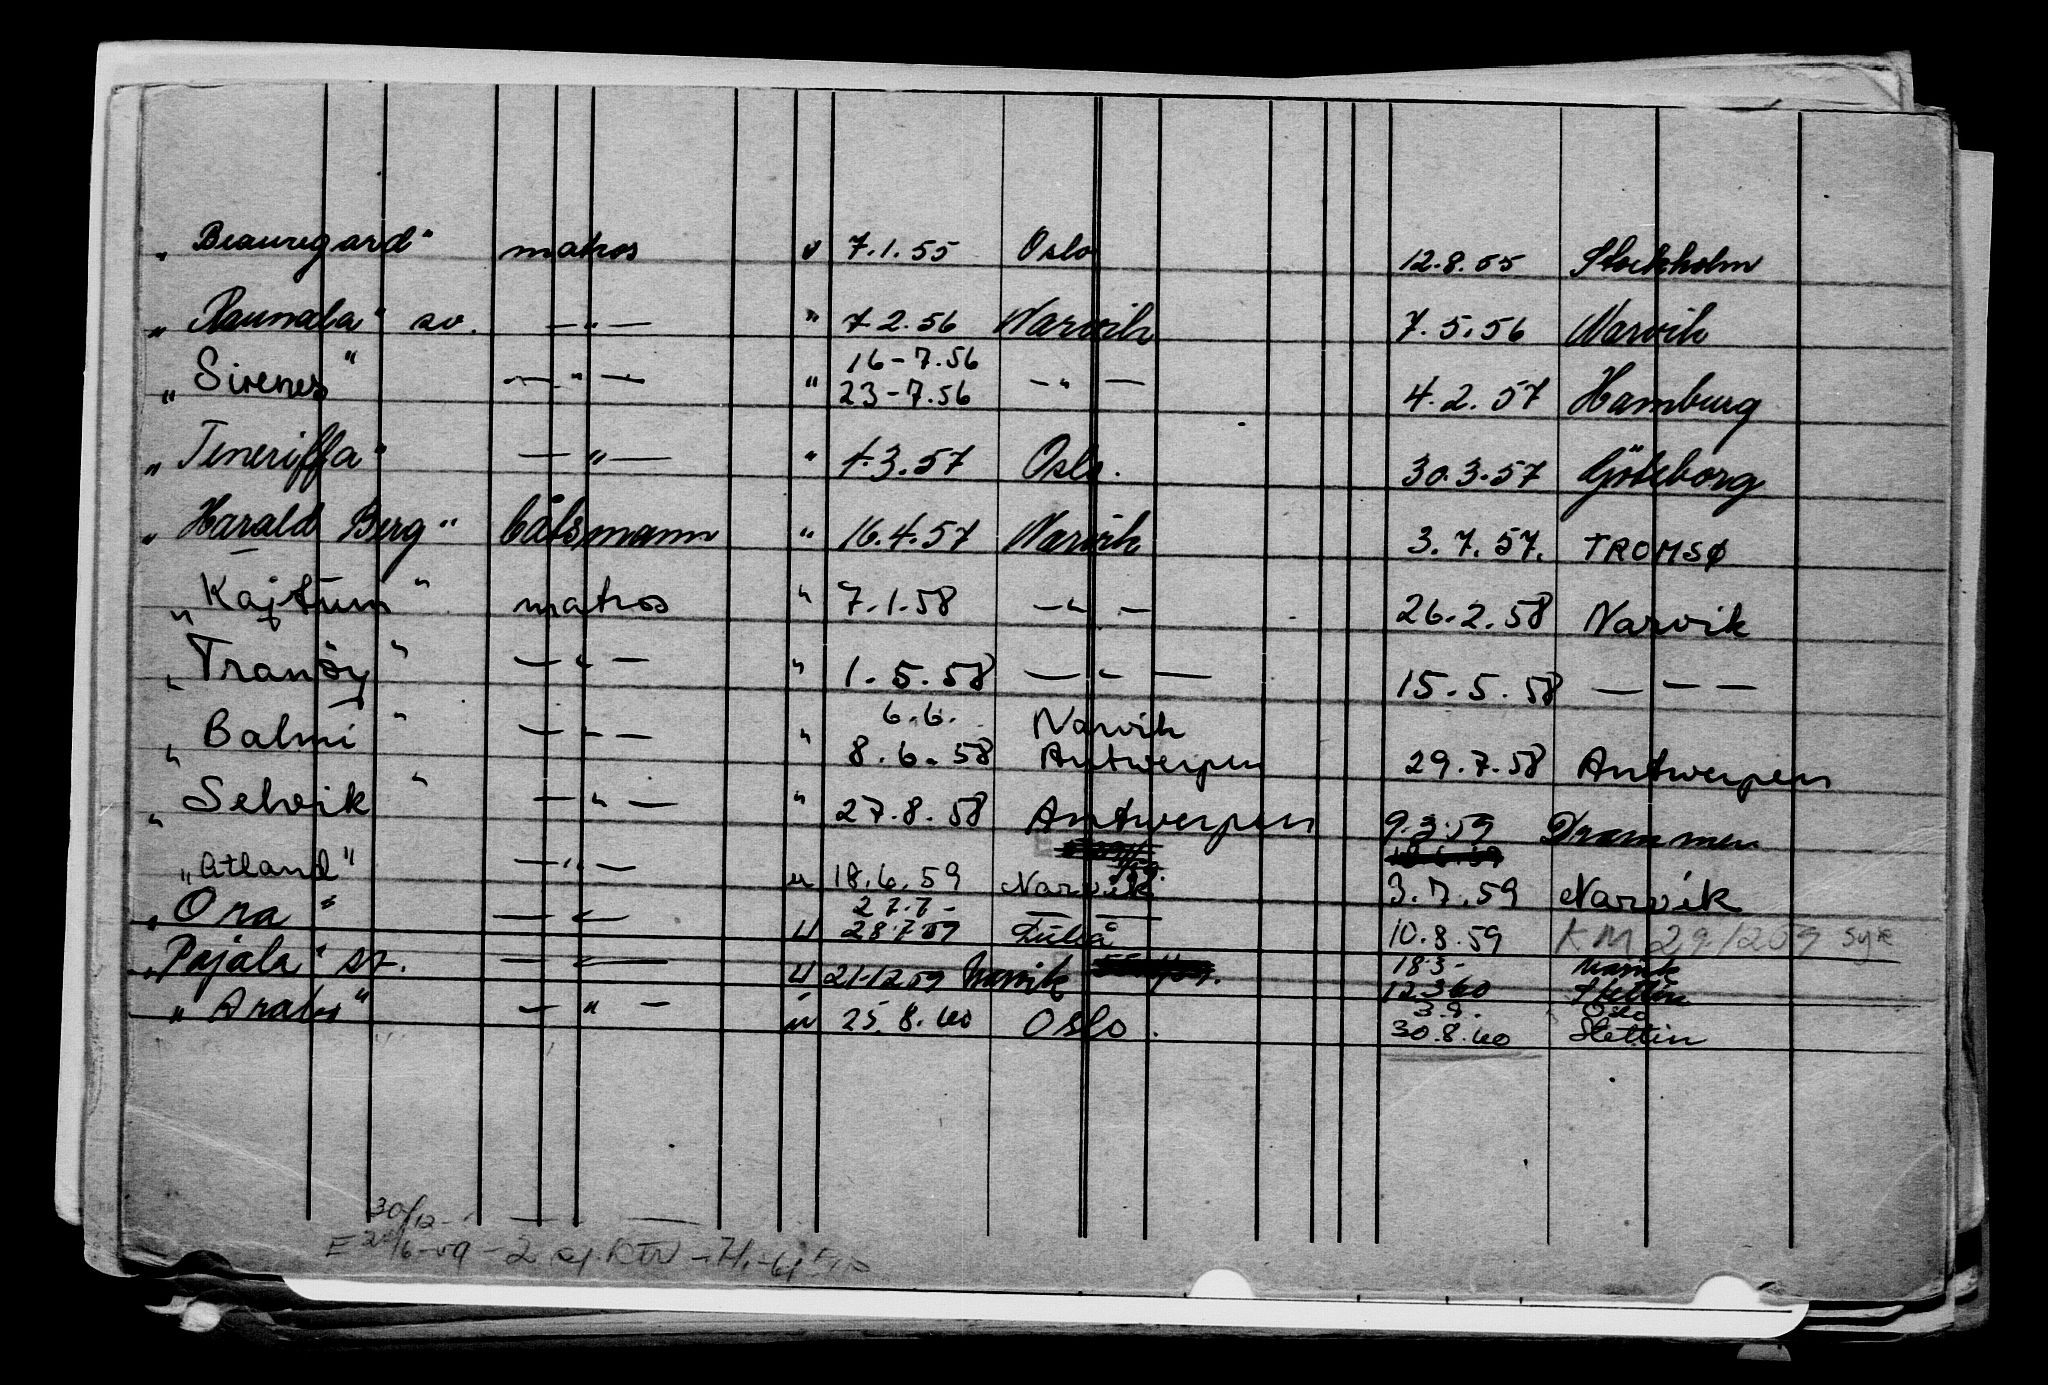 „Beauregard" matros u 7.1.55 Oslo 12.8.55 Stockholm
„Raunala" sv. —"— " 7.2.56 Narvik 7.5.56 Narvik
16-7.56
„Sirenes" —"— " 23-7.56 —"— 4.2.57 Hamburg
„Teneriffa" —"— " 1.3.57 Oslo. 30.3.57 Göteborg
„Harald Berg" båtsmann " 16.4.57 Narvik 3.7.57. TROMSØ
„Kajtum" matros " 7.1.58 —"— 26.2.58 Narvik
„Tranöy" —"— " 1.5.58 —"— 15.5.58 — — —
6.6. Narvik
„Balmi" —"— " 8.6.58 Antwerpen 29.7.58 Antwerpen
„Selvik" —"— " 27.8.58 Antwerpen 9.3.59 Drammen
„Atland" —"— " 18.6.59 Narvik 3.7.59 Narvik
27.7- — —
„Ora" —"— " 28.7.59 Luleå 10.8.59 KM 29/12 59 syk
18.3- Narvik
„Pajala" sv. —"— " 21.12.59 Narvik 12.3.60 Stettin
3.9. Oslo
„Arabs" —"— " 25.8.60 Oslo. 30.8.60 Stettin
30/12- — —
E 6-59 - 2